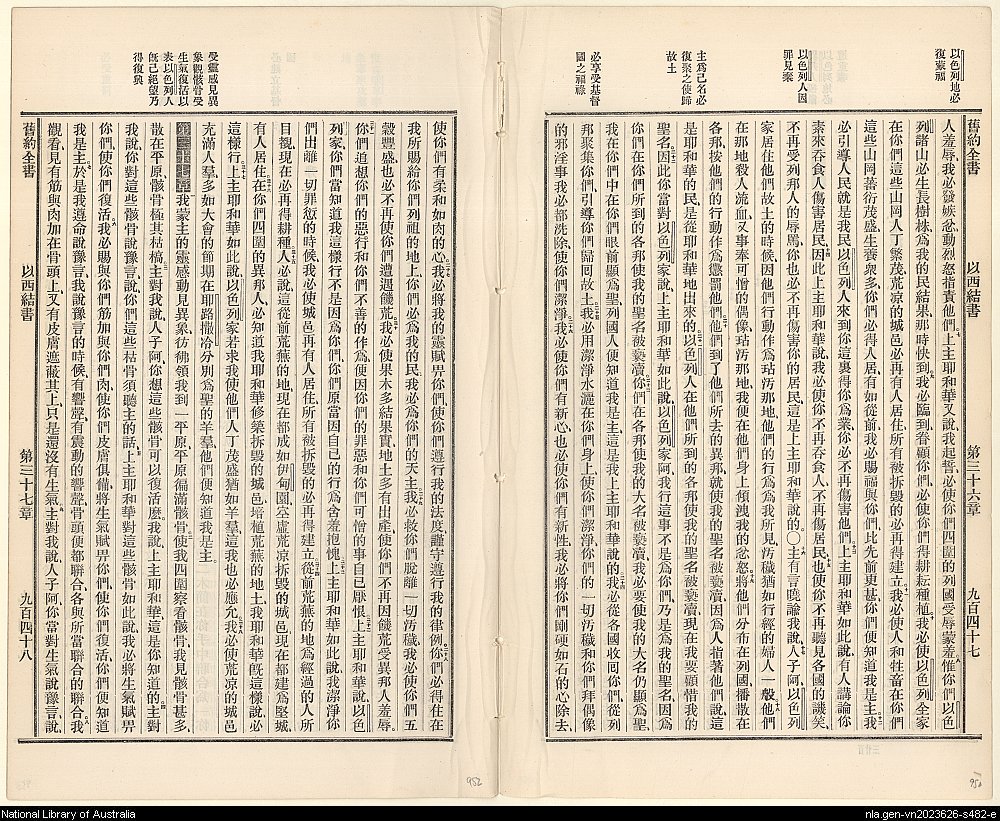 以色列地必
復蒙福
以色列人因
罪見棄
主爲己名必
復聚之使歸
故土
必享受基督
國之福祿
舊約全書 以西結書 第三十六章 九百四十七
人羞辱我必發嫉忿動烈怒指責他們上主耶和華又說我起誓必使你們四圍的列國受辱蒙羞惟你們以色
列諸山必生長樹株爲我的民結果那時快到我必臨到眷顧你們必使你們得耕耘種植我必使以色列全家
在你們這些山岡人丁繁茂荒凉的城邑必再有人居住所有被拆毀的必再得建立我必使人和牲畜在你們
這些山岡蕃衍茂盛生養衆多你們必得人居有如從前我必賜福與你們比先前更甚你們便知道我是主我
必引導人民就是我民以色列人來到你這裏得你爲業你必不再傷害他們上主耶和華如此說有人講論你
素來吞食人傷害居民因此上主耶和華說我必使你不再吞食人不再傷居民也使你不再聽見各國的譏笑
不再受列邦人的辱罵你也必不再傷害你的居民這是上主耶和華說的〇主有言曉諭我說人子阿以色列
家居住他們故土的時候因他們行動作爲玷汚那地他們的行爲我所見汚穢猶如行經的婦人一般他們
在那地殺人流血又事奉可憎的偶像玷汚那地我便在他們身上傾洩我的忿怒將他們分布在列國播散在
各邦按他們的行動作爲懲罰他們他們到了他們所去的異邦就使我的聖名被褻瀆因爲人指著他們說這
是耶和華的民是從耶和華地出來的以色列人在他們所到的各邦使我的聖名被褻瀆現在我要顧惜我的
聖名因此你當對以色列家說上主耶和華如此說以色列家阿我行這事不是爲你們乃是爲我的聖名就是
在你們所到的各邦你們使我的聖名被褻瀆你們在各邦使我的大名被褻瀆我必要使我的大名仍顯爲聖
我在你們中在你們眼前顯爲聖列國人便知道我是主這是我上主耶和華說的我必從各國收回你們從列
邦聚集你們引導你們歸囘故土我必用潔淨水灑在你們身上使你們潔淨你們的一切汚穢和你們拜偶像
的邪淫事我必都洗除使你們潔淨我必使你們有新心也必使你們有新性我必將你們剛硬如石的心除去
受靈感見異
象觀骸骨受
生氣復活以
表以色列人
旣已絕望乃
得復興
使你們有柔和如肉的心我必將我的靈賦畀你們使你們遵行我的法度謹守遵行我的律例你們必得住在
我所賜給你們列祖的地上你們必爲我的民我必爲你們的天主我必救你們脫離一切汚穢我必使你們五
穀豐盛也必不再使你們遭遇饑荒我必使果木多結果實地土多有出產使你們不再因饑荒受異邦人羞辱
你們追想你們的惡行和你們不善的作爲便因你們的罪惡和你們可憎的事自已厭恨上主耶和華說以色
列家你們當知道我這樣行不是因爲你們你們原當因自已的行爲含羞抱愧上主耶和華如此說我潔淨你
們出離一切罪愆的時候我必使城邑再有人居住所有被拆毀的必再得建立從前荒蕪的地爲經過的人所
目覩現在必再得耕種人必說這從前荒蕪的地現在都成如伊甸園空虛荒凉拆毀的城邑現在都建爲堅城
有人居住在你們四圍的異邦人必知道我耶和華修築拆毀的城邑培植荒蕪的地土我耶和華旣這樣說必
這樣行上主耶和華如此說以色列家若求我使他們人丁茂盛猶如羊羣這我也必應允我必使荒凉的城邑
充滿人羣多如大會的節期在耶路撒冷分別爲聖的羊羣他們便知道我是主
第三十七章我蒙主的靈感動見異象彷彿領我到一平原平原徧滿骸骨使我四圍察看骸骨我見骸骨甚多
散在平原骸骨極其枯槁主對我說人子阿你想這些骸骨可以復活麽我說上主耶和華這是你知道的主對
我說你對這些骸骨說豫言說你們這些枯骨須聽主的話上主耶和華對這些骸骨如此說我必將生氣賦畀
你們使你們復活我必賜與你們筋加與你們肉使你們皮膚俱備將生氣賦畀你們使你們復活你們便知道
我是主於是我遵命說豫言我說豫言的時候有響聲有震動的響聲骨頭便都聯合各與所當聯合的聯合我
觀看見有筋與肉加在骨頭上又有皮膚遮蔽其上只是還沒有生氣主對我說人子阿你當對生氣說豫言說
舊約全書 以西結書 第三十七章 九百四十八
952
951
National Library of Australia
nla.gen-vn2023626-s482-e